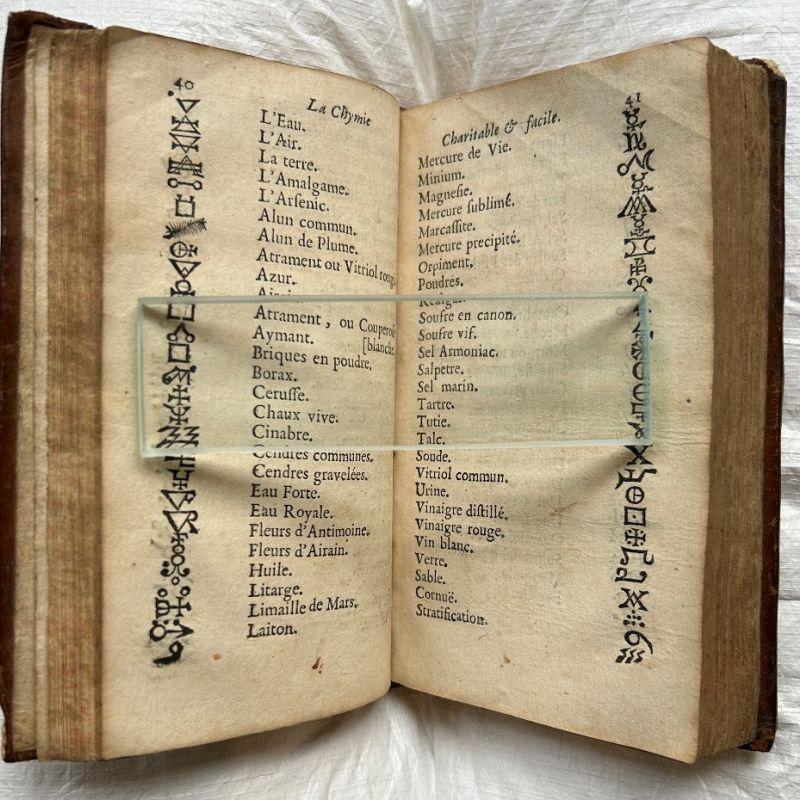 40
La Chymie
L'Eau.
L'Air.
La terre.
L'Amalgame.
L'Arſenic.
Alun commun.
Alun de Plume.
Atrament ou Vitriol roug
Azur.
Atrament, ou Couperoſe
Aymant. [blanche.
Briques en poudre.
Borax.
Ceruſſe.
Chaux vive.
Cinabre.
Cendres communes.
Cendres gravelées.
Eau Forte.
Eau Royale.
Fleurs d'Antimoine.
Fleurs d'Airain.
Huile.
Litarge.
Limaille de Mars.
Laiton.
41
Charitable & facile.
Mercure de Vie.
Minium.
Magneſie.
Mercure ſublimé.
Marcaſſite.
Mercure precipité.
Orpiment.
Poudres.
Realgar
Soufre en canon.
Soufre vif.
Sel Armoniac.
Salpetre.
Sel marin.
Tartre.
Tutie.
Talc.
Soude.
Vitriol commun.
Urine.
Vinaigre diſtillé.
Vinaigre rouge.
Vin blanc.
Verre.
Sable.
Cornuë.
Stratification.